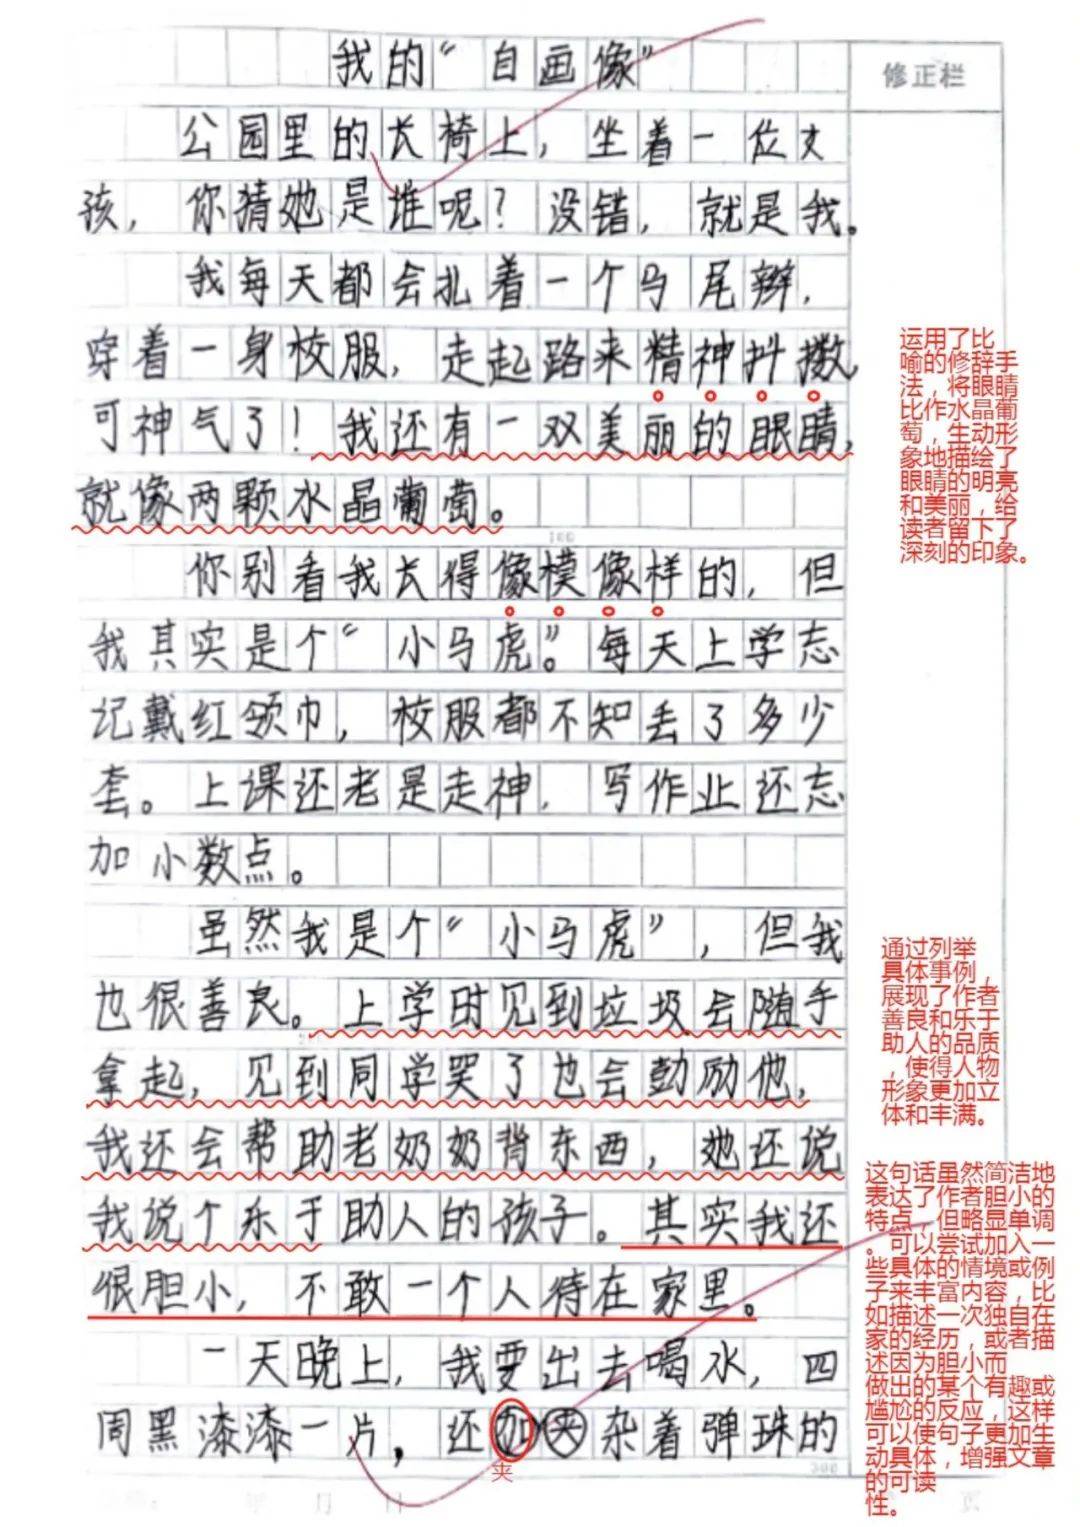 我的“自画像”
修正栏
公园里的长椅上，坐着一位女
孩，你猜她是谁呢？没错，就是我。
我每天都会扎着一个马尾辫，
穿着一身校服，走起路来精神抖擞，
可神气了！我还有一双美丽的眼睛，
就像两颗水晶葡萄。
100
你别看我长得像模像样的，但
我其实是个“小马虎”。每天上学忘
记戴红领巾，校服都不知丢了多少
套。上课还老是走神，写作业还忘
加小数点。
虽然我是个“小马虎”，但我
也很善良。上学时见到垃圾会随手
拿起，见到同学哭了也会鼓励他，
我还会帮助老奶奶背东西，她还说
我说个乐于助人的孩子。其实我还
很胆小，不敢一个人待在家里。
一天晚上，我要出去喝水，四
周黑漆漆一片，还加夹杂着弹珠的
夹
300
年 月 日
页
运用了比
喻的修辞手
法，将眼睛
比作水晶葡
萄，生动形
象地描绘了
眼睛的明亮
和美丽，给
读者留下了
深刻的印象。
通过列举
具体事例，
展现了作者
善良和乐于
助人的品质
，使得人物
形象更加立
体和丰满。
这句话虽然简洁地
表达了作者胆小的
特点，但略显单调
。可以尝试加入一
些具体的情境或例
子来丰富内容，比
如描述一次独自在
家的经历，或者描
述因为胆小而
做出的某个有趣或
尴尬的反应，这样
可以使句子更加生
动具体，增强文章
的可读
性。